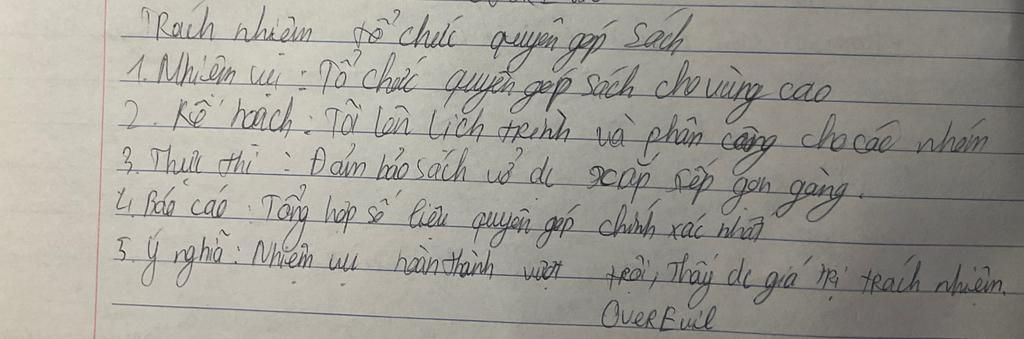 Trách nhiệm tổ chức quyên góp sách
1. Nhiệm vụ: Tổ chức quyên góp sách cho vùng cao
2. Kế hoạch: Tôi lên lịch trình và phân công cho các nhóm
3. Thực thi: Đảm bảo sách vở đc xắp xếp gọn gàng.
4. Báo cáo: Tổng hợp số liệu quyên góp chính xác nhất
5. Ý nghĩa: Nhiệm vụ hoàn thành vượt trội, Thấy đc giá trị trách nhiệm.
OverEvil